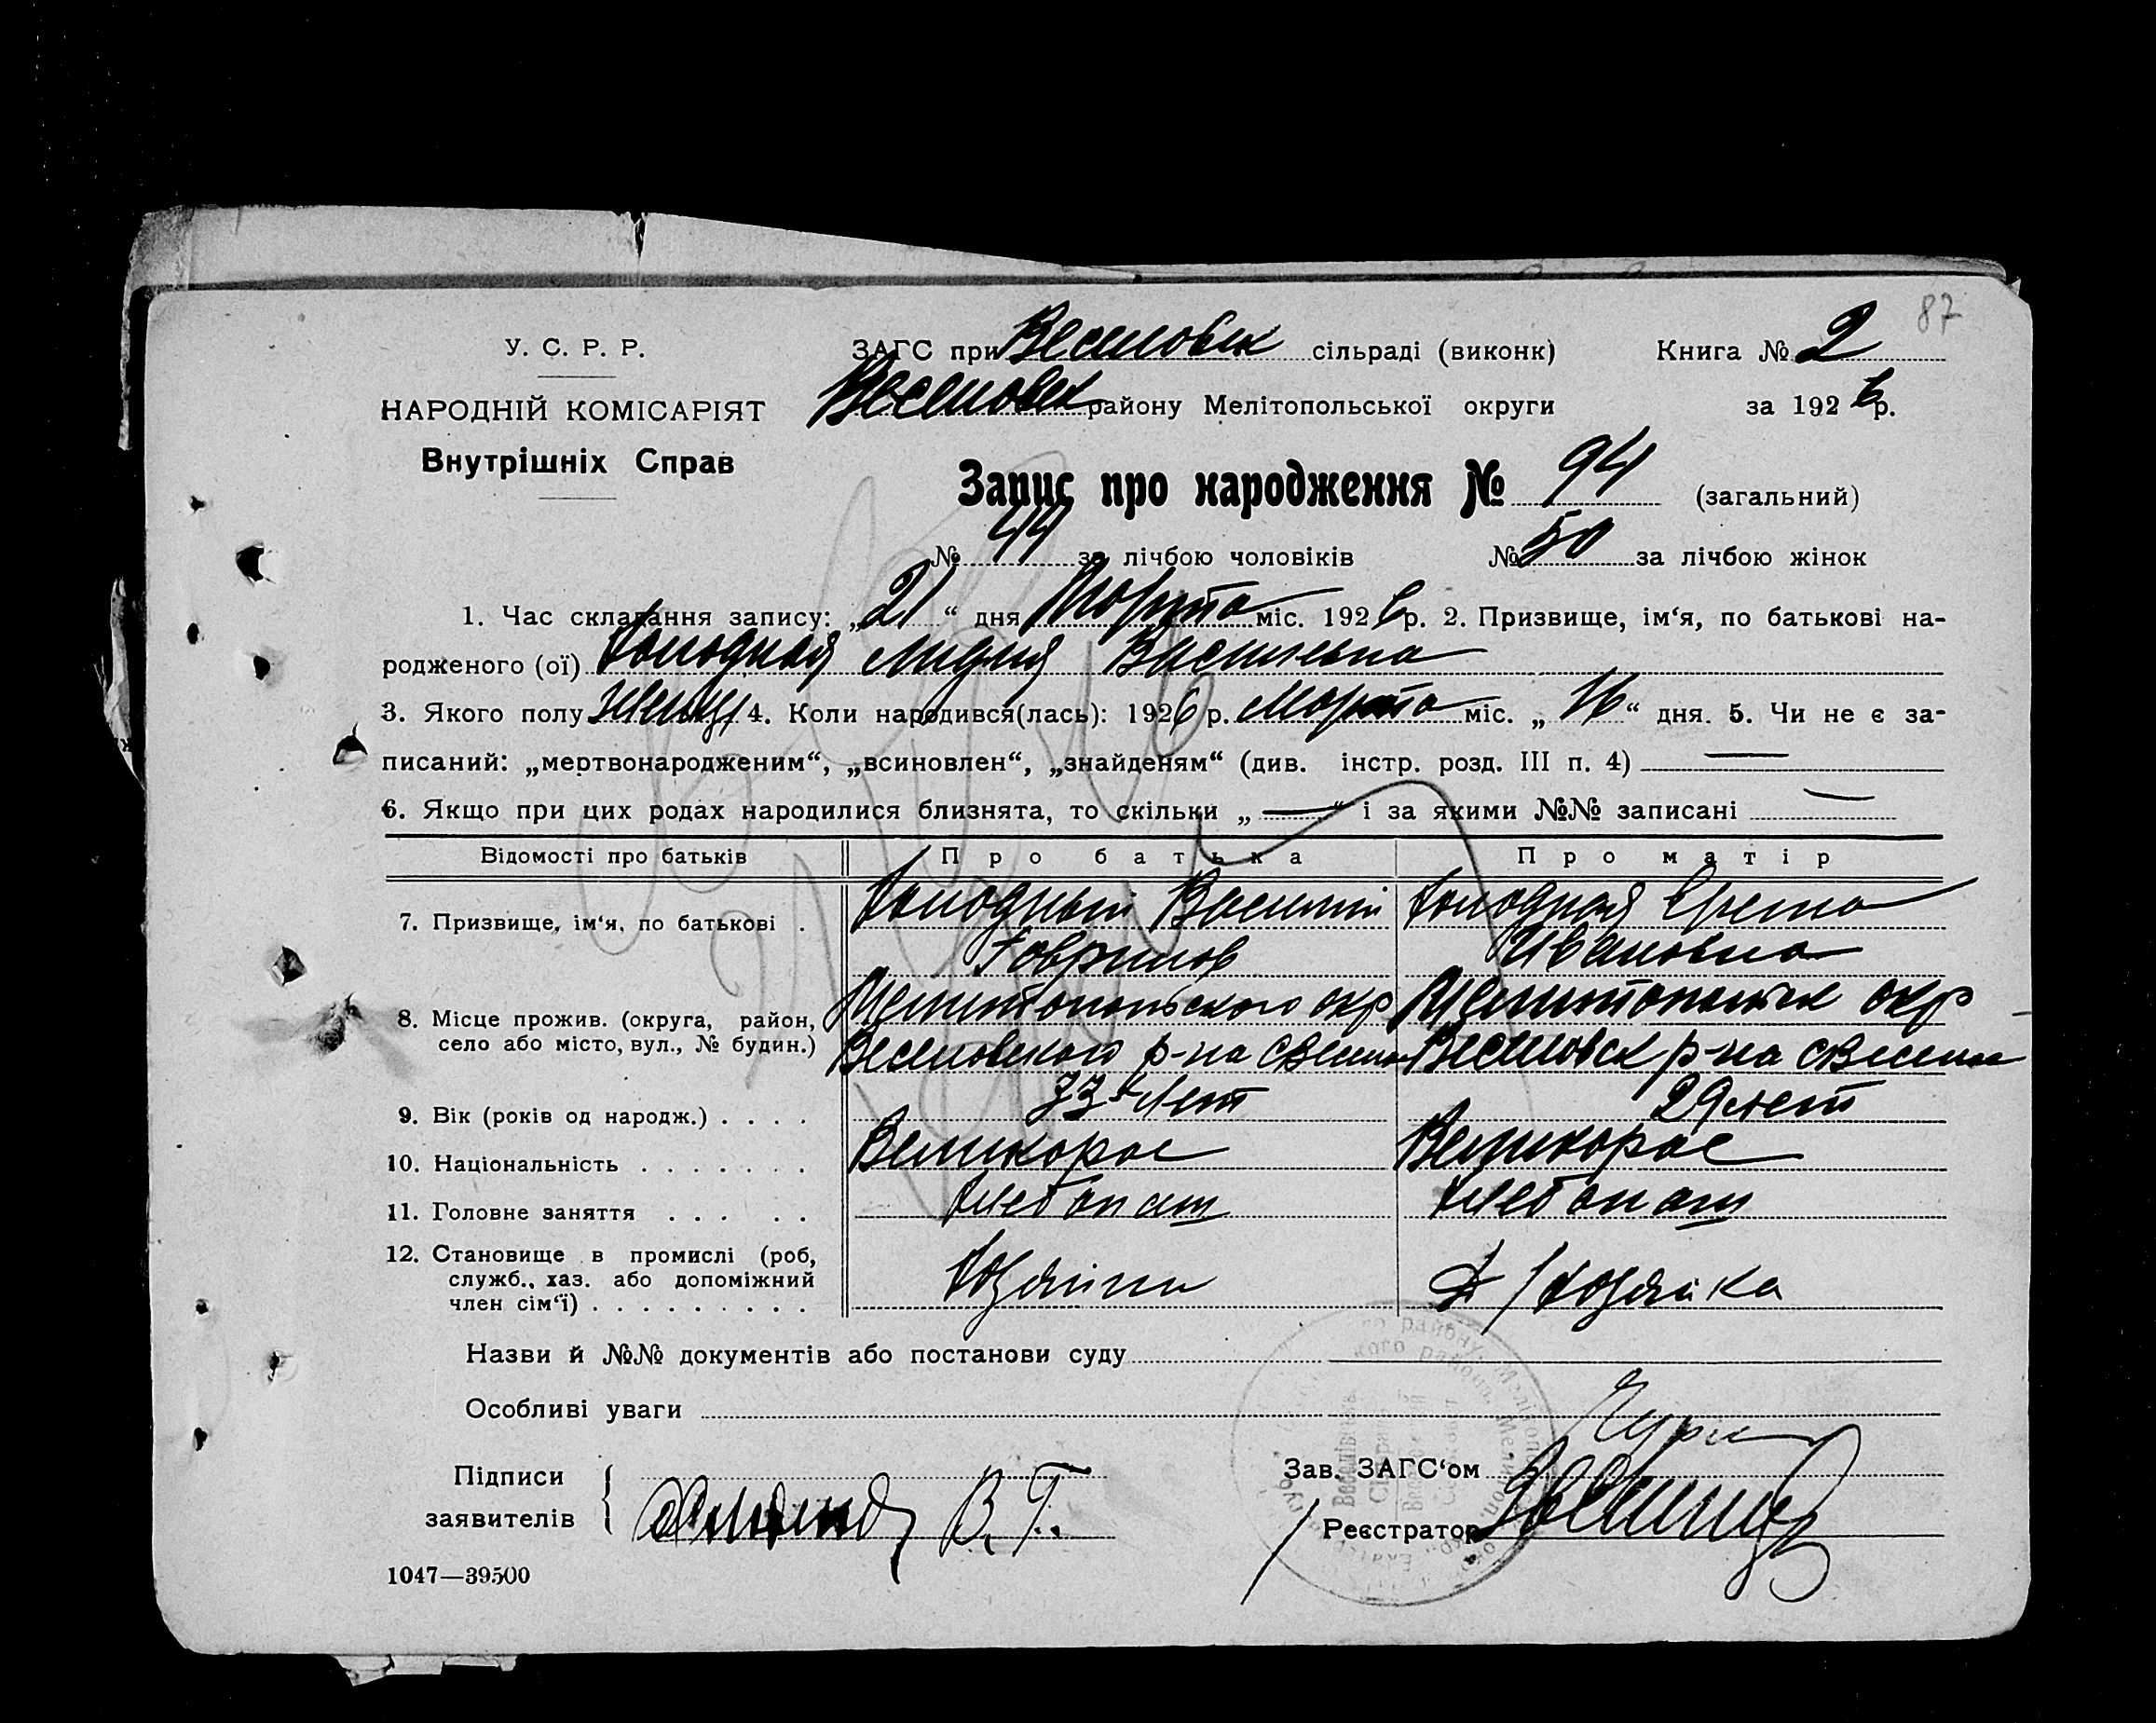 87
У. С. Р. Р.
НАРОДНІЙ КОМІСАРІЯТ
Внутрішніх Справ
ЗАГС при Веселовск сільраді (виконк) Книга № 2
Веселовск району Мелітопольської округи за 1926 р.
Запис про народження № 94 (загальний)
№ 44 за лічбою чоловіків № 50 за лічбою жінок
1. Час складання запису: „21“ дня Марта міс. 1926 р. 2. Призвище, ім‘я, по батькові на-
родженого (ої) Холодная Лидия Васильевна
3. Якого полу 4. Коли народився(лась): 1926 р. Марта міс. „16“ дня. 5. Чи не є за-
писаний: „мертвонародженим“, „всиновлен“, „знайденям“ (див. інстр. розд. III п. 4) —
6. Якщо при цих родах народилися близнята, то скільки „—“ і за якими №№ записані —
Відомості про батьків Про батька Про матір
7. Призвище, ім‘я, по батькові . Холодный Василий Холодная Ирина
Гаврилов Ивановна
8. Місце прожив. (округа, район, Мелитопольского окр Мелитопольск окр
село або місто, вул., № будин.) Веселовского р-на Веселовск р-на
9. Вік (років од народж.) . . . . 33 лет 29 лет
10. Національність . . . . . . . Великорос Великорос
11. Головне заняття . . . . . Хлебопаш Хлебопаш
12. Становище в промислі (роб, Хозяин Д/Хозяйка
служб., хаз. або допоміжний
член сім‘ї) . . . . . . . . .
Назви й №№ документів або постанови суду
Особливі уваги
Підписи Зав. ЗАГС‘ом
заявителів В. Г. Реєстратор
1047—39500